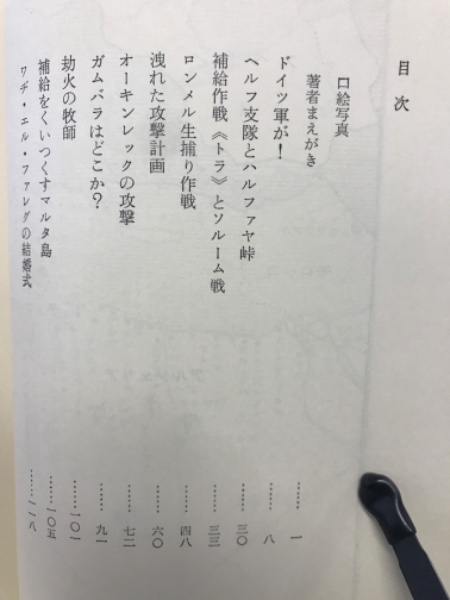 目次
口絵写真
著者まえがき……一
ドイツ軍が！……八
ヘルフ支隊とハルファヤ峠……三〇
補給作戦《トラ》とソルーム戦……三三
ロンメル生捕り作戦……四八
洩れた攻撃計画……六〇
オーキンレックの攻撃……七二
ガムバラはどこか？……九一
劫火の牧師……一〇一
補給をくいつくすマルタ島……一〇五
ワヂ・エル・ファレグの結婚式……一一八